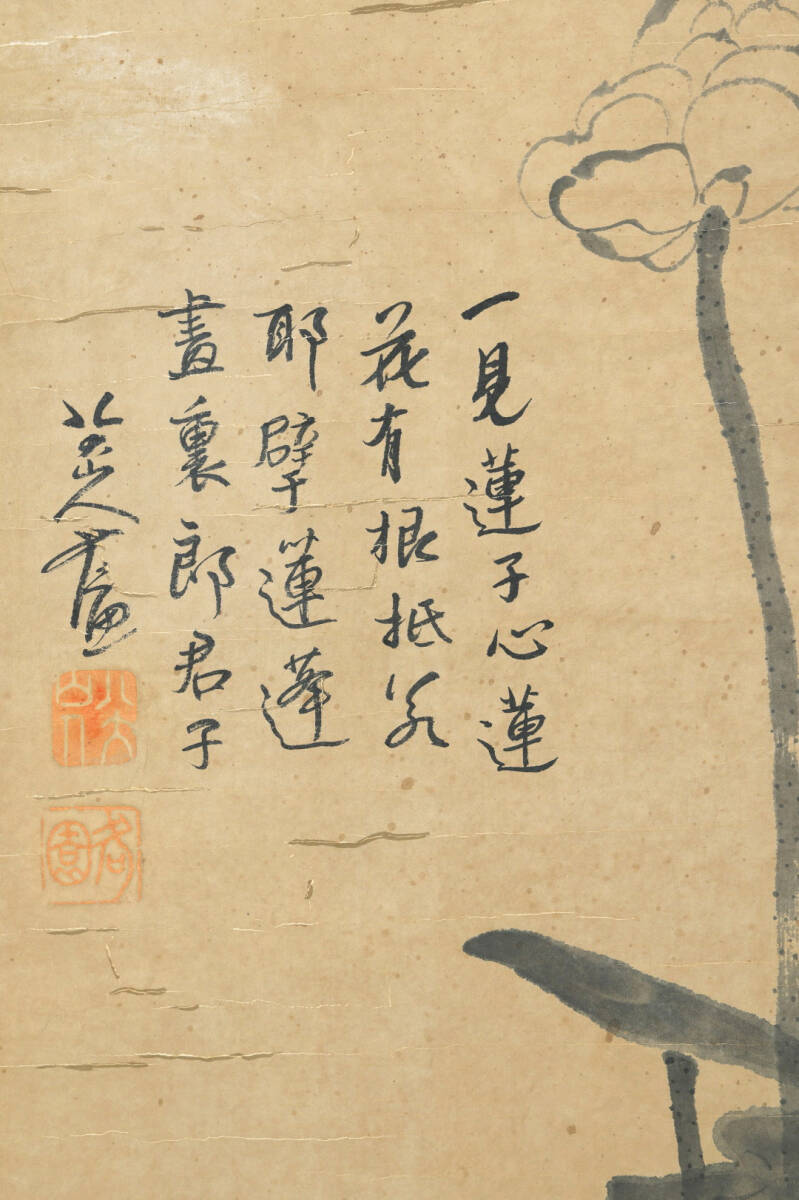 一見蓮子心蓮
花有根柢若
耶擘蓮蓬
畫裏郎君子
八大山人畫
八大山人
何園